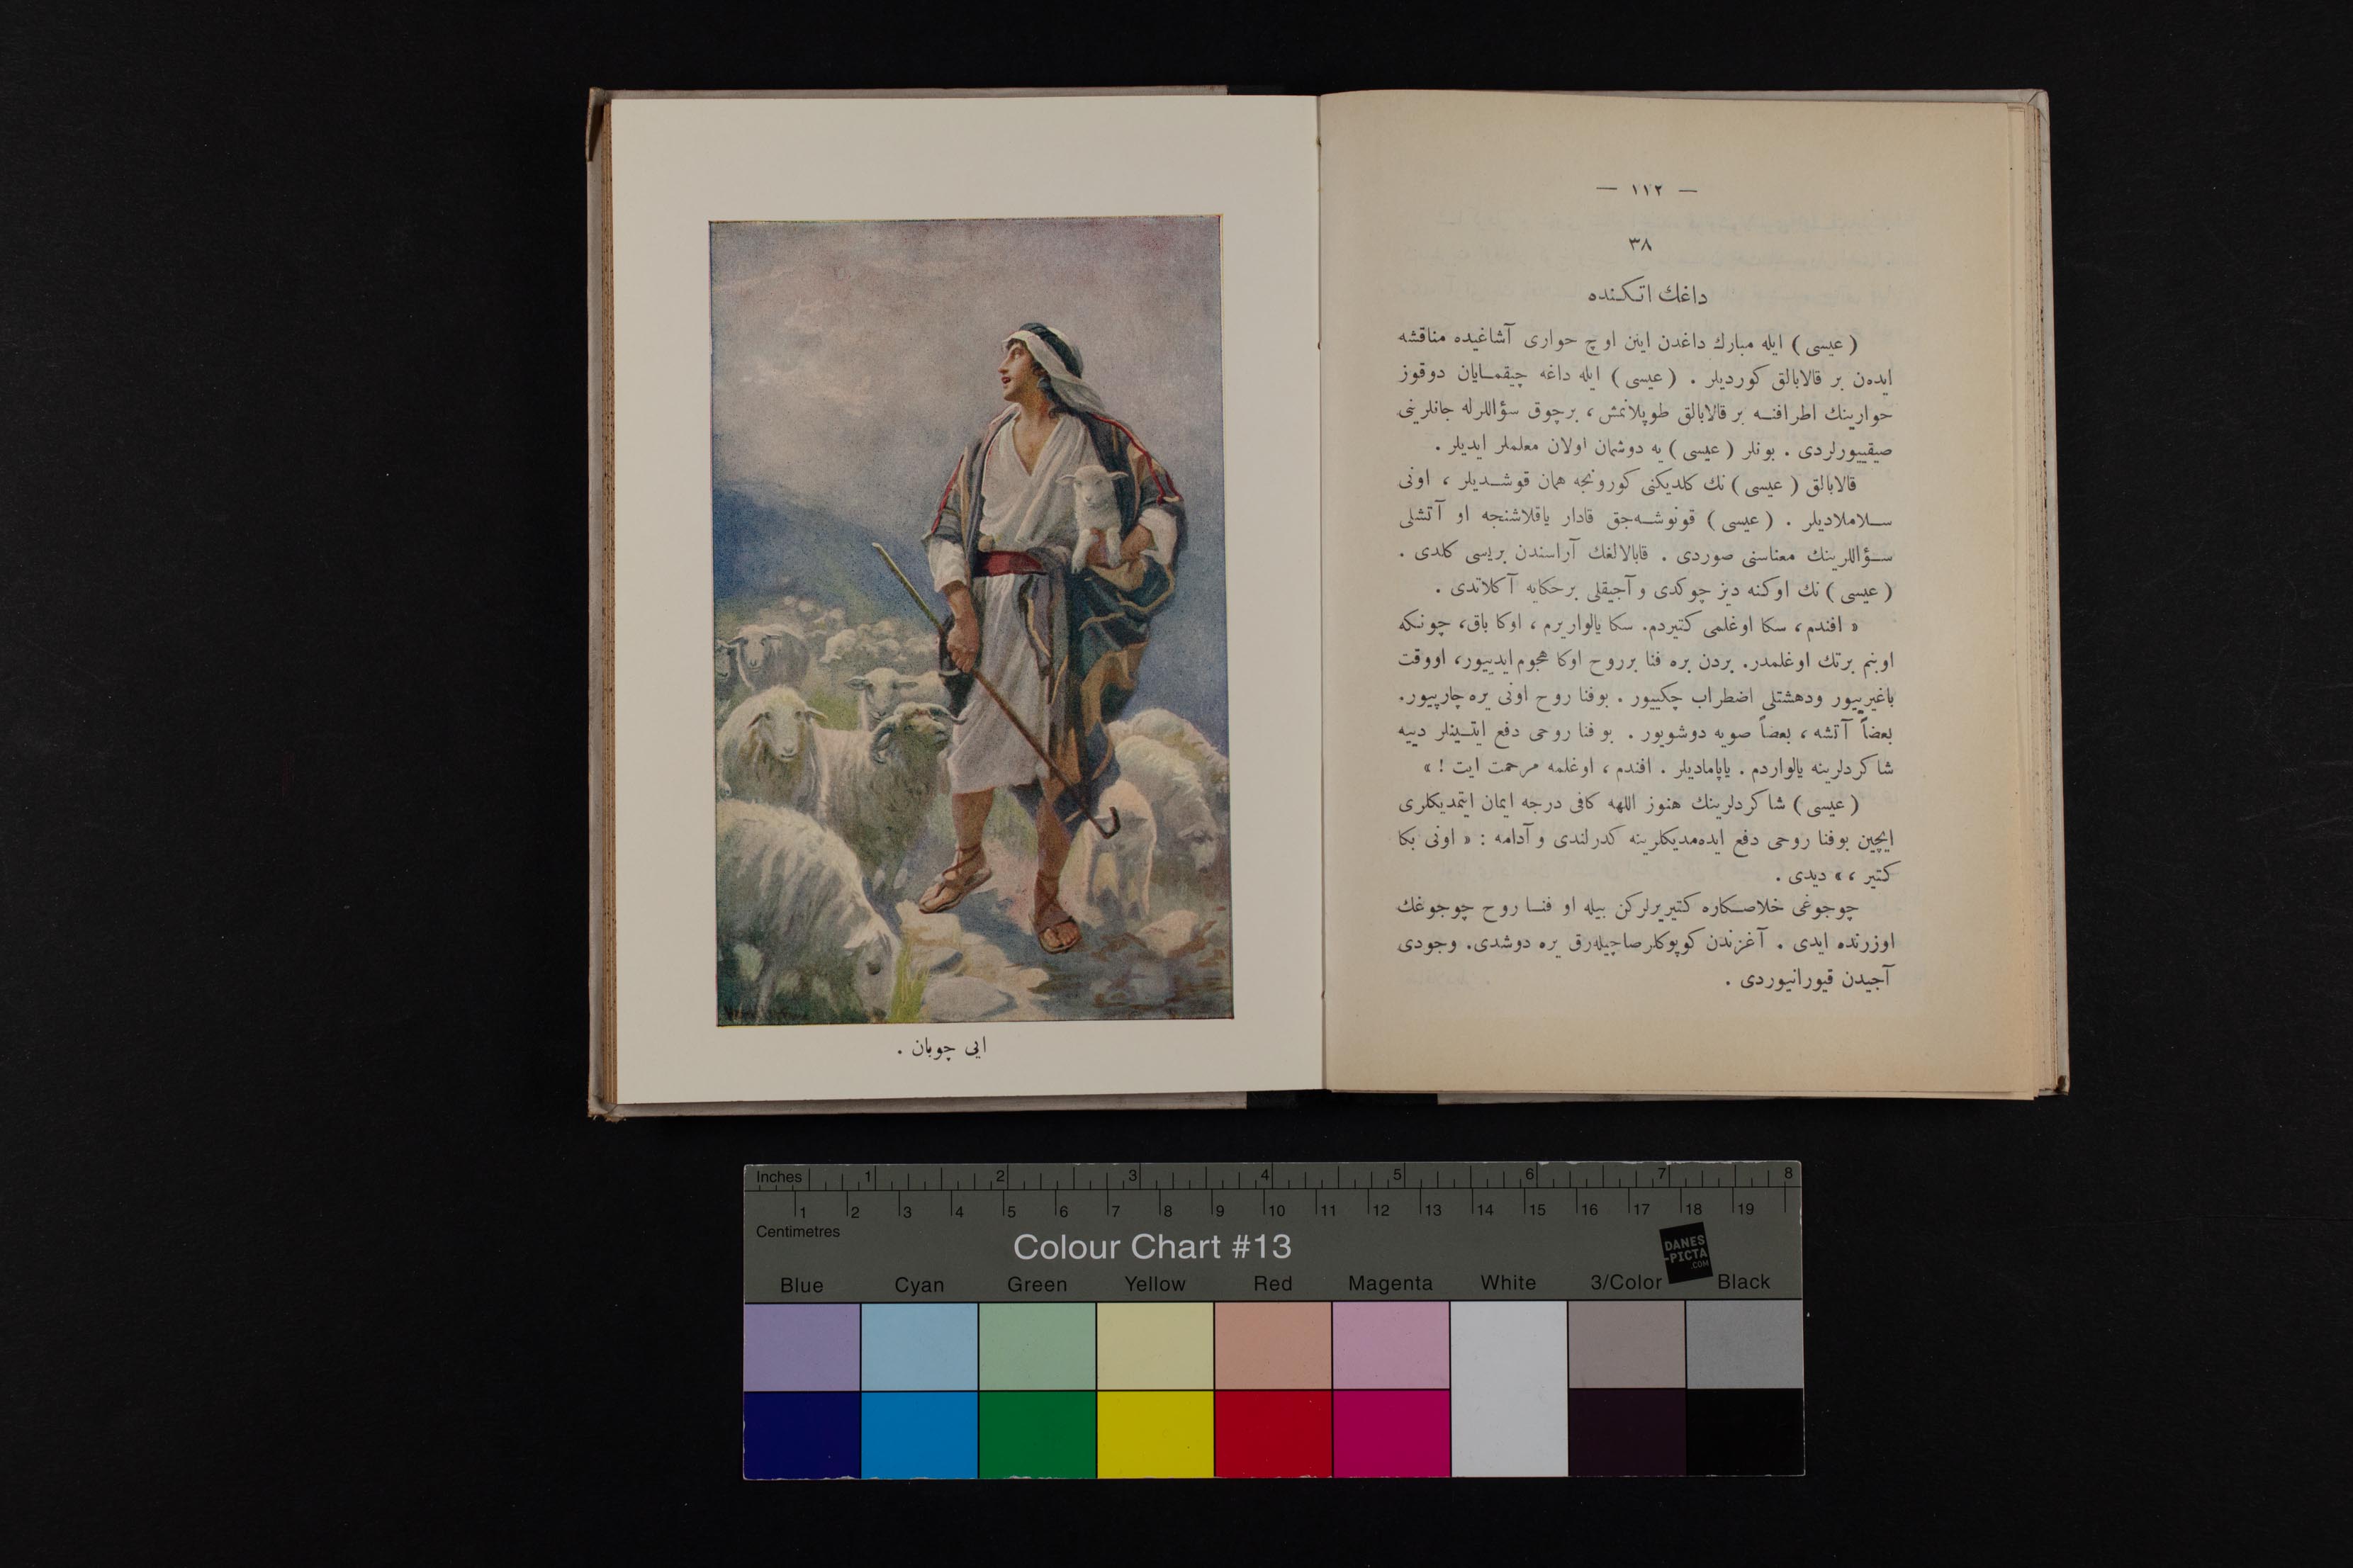 — ١١٢ —
٣٨
داغك اتكـنده
( عيسى ) ايله مبارك داغدن اينن اوچ حوارى آشاغيده مناقشه
ايده‌ن بر قالابالق كورديلر . ( عيسى ) ايله داغه چيقمـايان دوقوز
حوارينك اطرافنـه بر قالابالق طوپلانمش ، برچوق سؤاللرله جانلرينى
صيقييورلردى . بونلر ( عيسى ) يه دوشمان اولان معلملر ايديلر .
قالابالق ( عيسى ) نك كلديكنى كورونجه همان قوشـديلر ، اونى
سـلاملاديلر . ( عيسى ) قونوشـه‌جق قادار ياقلاشنجه او آتشلى
سـؤاللرينك معناسنى صوردى . قابالالغك آراسندن بريسى كلدى .
( عيسى ) نك اوكنه ديز چوكدى و آجيقلى برحكايه آكلاتدى .
« افندم ، سكا اوغلمى كتيردم. سكا يالواريرم ، اوكا باق، چونـكه
اوبنم برتك اوغلمدر. بردن بره فنا برروح اوكا هجوم ايدييور، اووقت
باغيرييور ودهشتلى اضطراب چكييور . بوفنا روح اونى يره چارپيور.
بعضاً آتشه ، بعضاً صويه دوشويور . بو فنا روحى دفع ايتـينلر دييه
شاكردلرينه يالواردم . ياپاماديلر . افندم ، اوغلمه مرحمت ايت ! »
( عيسى ) شاكردلرينك هنوز اللهه كافى درجه ايمان ايتمديكلرى
ايچين بوفنا روحى دفع ايده‌مديكلرينه كدرلندى و آدامه : « اونى بكا
كتير ، » ديدى .
چوجوغى خلاصـكاره كتيريرلركن بيله او فنـا روح چوجوغك
اوزرنده ايدى . آغزندن كوپوكلرصاچيله‌رق يره دوشدى. وجودى
آجيدن قيورانيوردى .
ايى چوبان .
Inches 1 2 3 4 5 6 7 8
1 2 3 4 5 6 7 8 9 10 11 12 13 14 15 16 17 18 19
Centimetres
Colour Chart #13
DANES
-PICTA
.COM
Blue Cyan Green Yellow Red Magenta White 3/Color Black